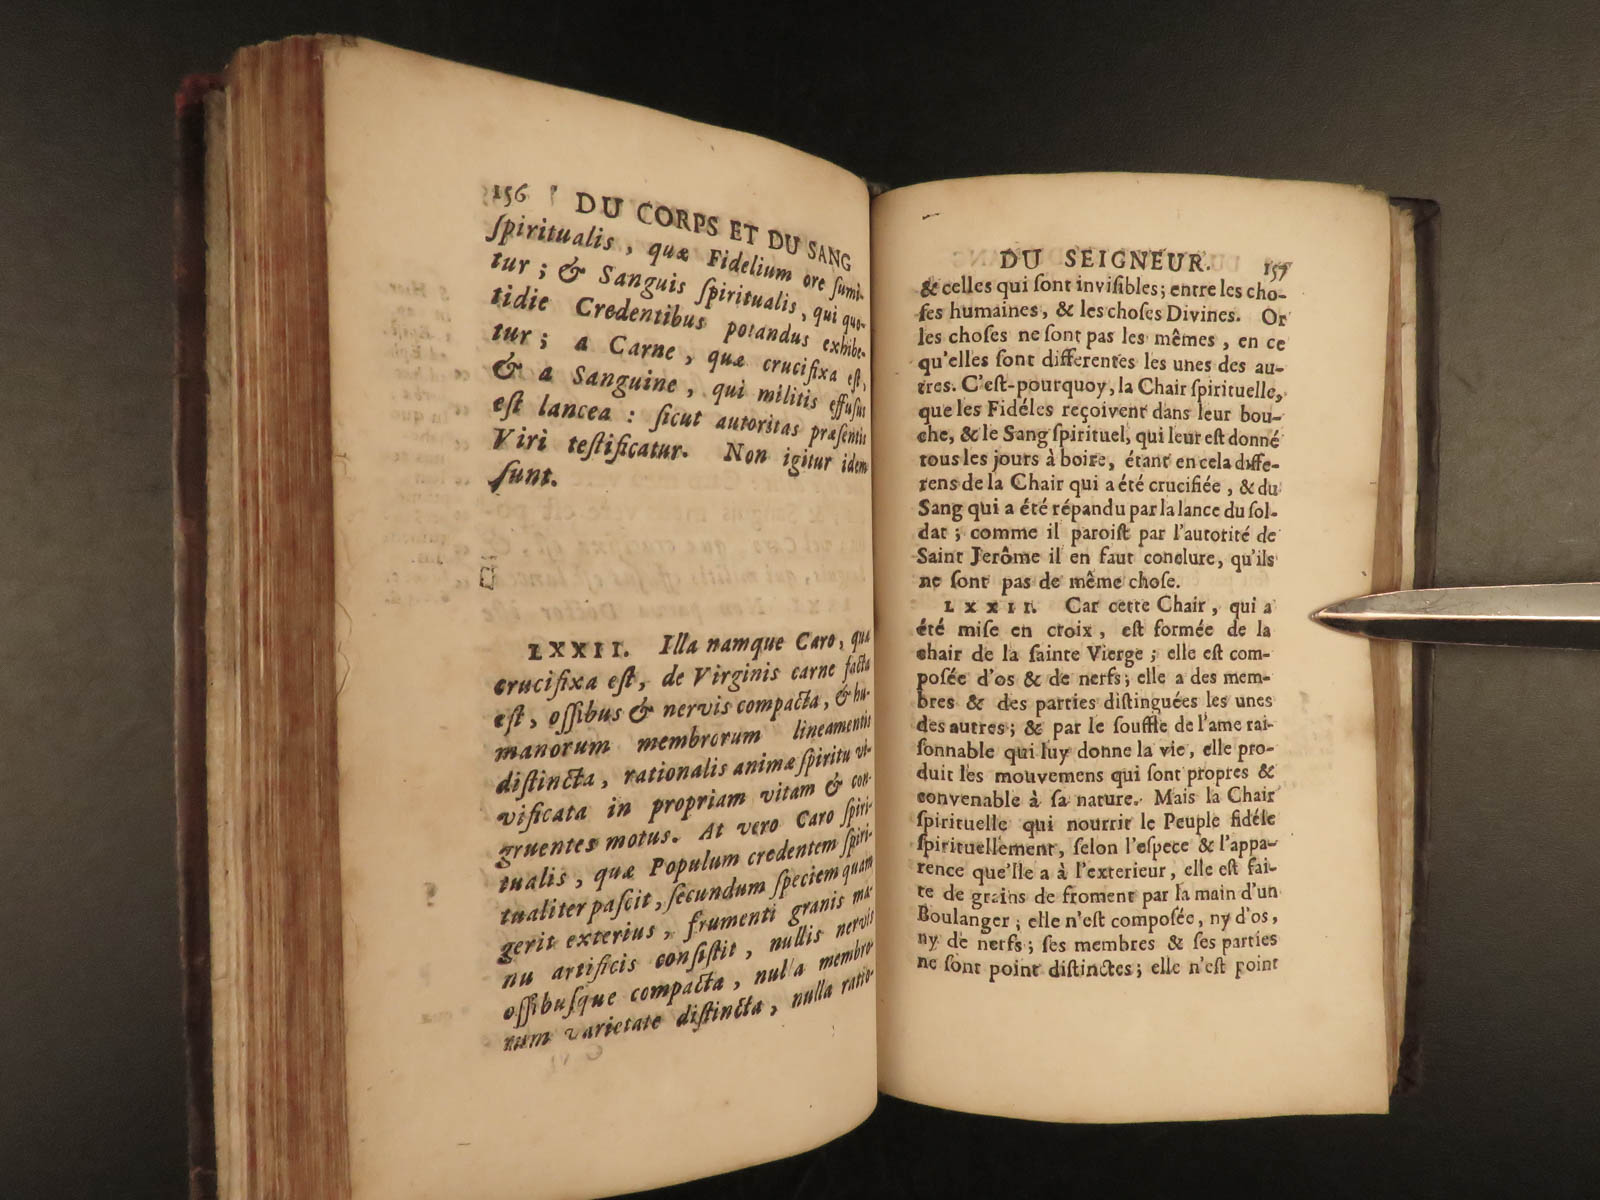 156 DU CORPS ET DU SANG
ſpiritualis, quæ Fidelium ore ſumi-
tur; & Sanguis ſpiritualis, qui quo-
tidie Credentibus potandus exhibe-
tur; a Carne, quæ crucifixa eſt,
& a Sanguine, qui militis effuſus
eſt lancea: ſicut autoritas præſentis
Viri teſtificatur. Non igitur idem
ſunt.
LXXII. Illa namque Caro, quæ
crucifixa eſt, de Virginis carne facta
eſt, oſſibus & nervis compacta, & hu-
manorum membrorum lineamentis
diſtincta, rationalis animæ ſpiritu vi-
vificata in propriam vitam & con-
gruentes motus. At vero Caro ſpiri-
tualis, quæ Populum credentem ſpiri-
tualiter paſcit, ſecundum ſpeciem quam
gerit exterius, frumenti granis ma-
nu artificis conſiſtit, nullis nervis
oſſibuſque compacta, nulla membro-
rum varietate diſtincta, nulla ratio-
DU SEIGNEUR. 157
& celles qui ſont inviſibles; entre les cho-
ſes humaines, & les choſes Divines. Or
les choſes ne ſont pas les mêmes, en ce
qu'elles ſont differentes les unes des au-
tres. C'eſt-pourquoy, la Chair ſpirituelle,
que les Fidéles reçoivent dans leur bou-
che, & le Sang ſpirituel, qui leur eſt donné
tous les jours à boire, étant en cela diffe-
rens de la Chair qui a été crucifiée, & du
Sang qui a été répandu par la lance du ſol-
dat; comme il paroiſt par l'autorité de
Saint Jerôme il en faut conclure, qu'ils
ne ſont pas de même choſe.
LXXII. Car cette Chair, qui a
été miſe en croix, eſt formée de la
chair de la ſainte Vierge; elle eſt com-
poſée d'os & de nerfs; elle a des mem-
bres & des parties diſtinguées les unes
des autres; & par le ſouffle de l'ame rai-
ſonnable qui luy donne la vie, elle pro-
duit les mouvemens qui ſont propres &
convenable à ſa nature. Mais la Chair
ſpirituelle qui nourrit le Peuple fidéle
ſpirituellement, ſelon l'eſpece & l'appa-
rence que'lle a à l'exterieur, elle eſt fai-
te de grains de froment par la main d'un
Boulanger; elle n'eſt compoſée, ny d'os,
ny de nerfs; ſes membres & ſes parties
ne ſont point diſtinctes; elle n'eſt point